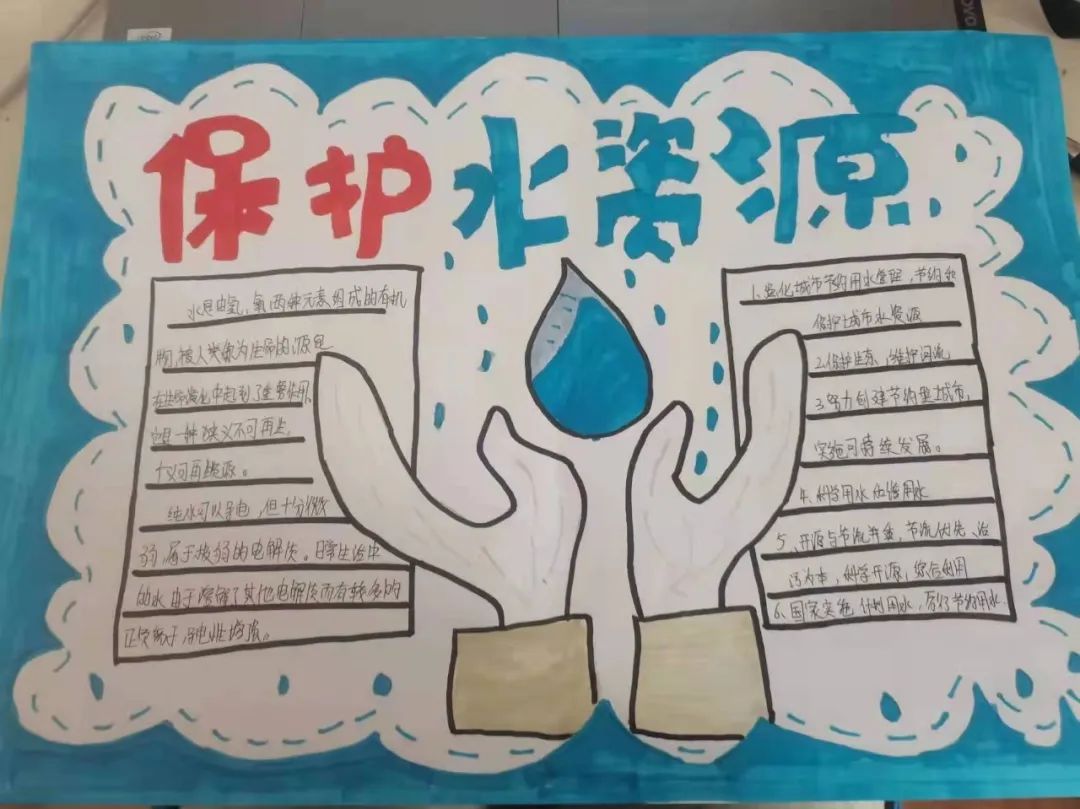 保护水资源
水是由氢,氧两种元素组成的有机
物,被人类称为生命的源包
在生命演化中起到了重要作用,
它是一种狭义不可再生,
广义可再生资源。
纯水可以导电,但十分微
弱,属于极弱的电解质。日常生活中
的水由于溶解了其他电解质而有较多的
正负离子,导电性增强。
1.强化城市节约用水管理,节约和
保护城市水资源
2.保护生态,维护河流
3.努力创建节约型城市,
实施可持续发展。
4.科学用水 用水
5、开源与节流并重,节流优先、治
污为本,科学开源,综合利用
6、国家实施 计划用水,厉行节约用水.